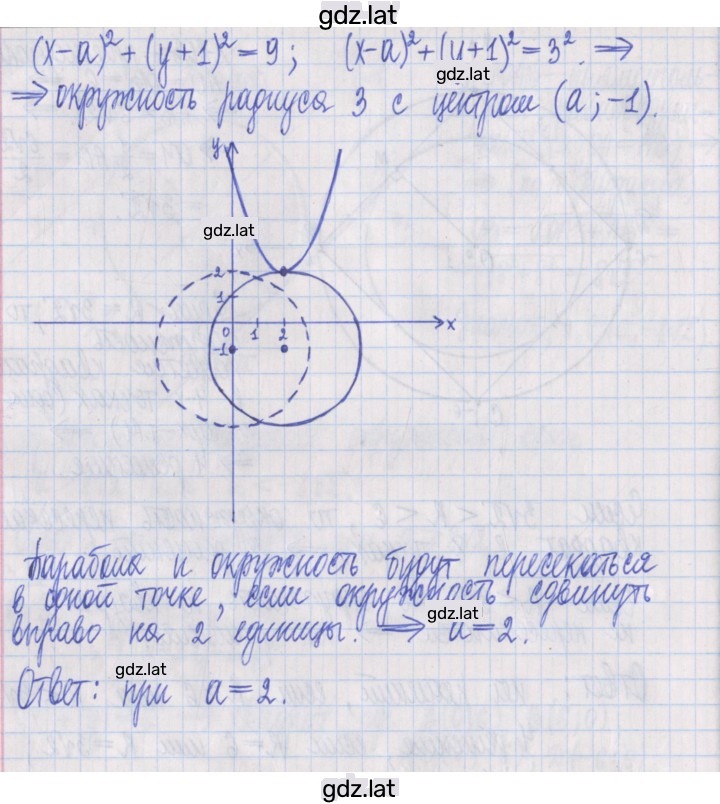 gdz.lat
(x-a)²+(y+1)²=9; (x-a)²+(y+1)²=3². ⇒
gdz.lat
⇒ окружность радиуса 3 с центром (a;-1).
y
gdz.lat
2
1
0 1 2 x
-1
Парабола и окружность будут пересекаться
в одной точке, если окружность сдвинуть
gdz.lat
вправо на 2 единицы. ⇒ a=2.
gdz.lat
Ответ: при a=2.
gdz.lat